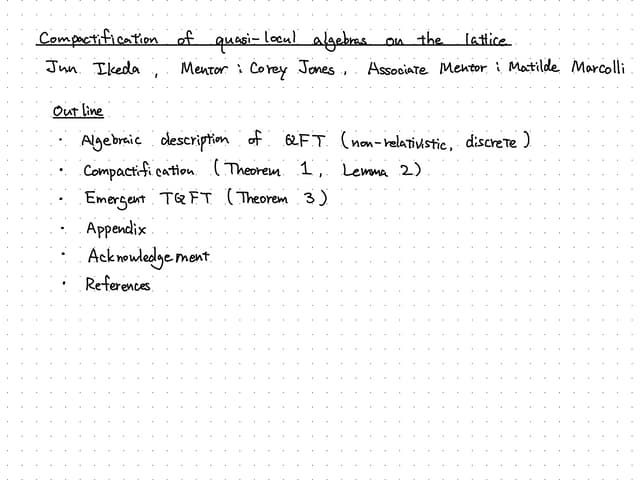 Compactification of quasi-local algebras on the lattice
Jun Ikeda, Mentor: Corey Jones, Associate Mentor: Matilde Marcolli
Outline
· Algebraic description of QFT (non-relativistic, discrete)
· Compactification (Theorem 1, Lemma 2)
· Emergent TQFT (Theorem 3)
· Appendix
· Acknowledgement
· References